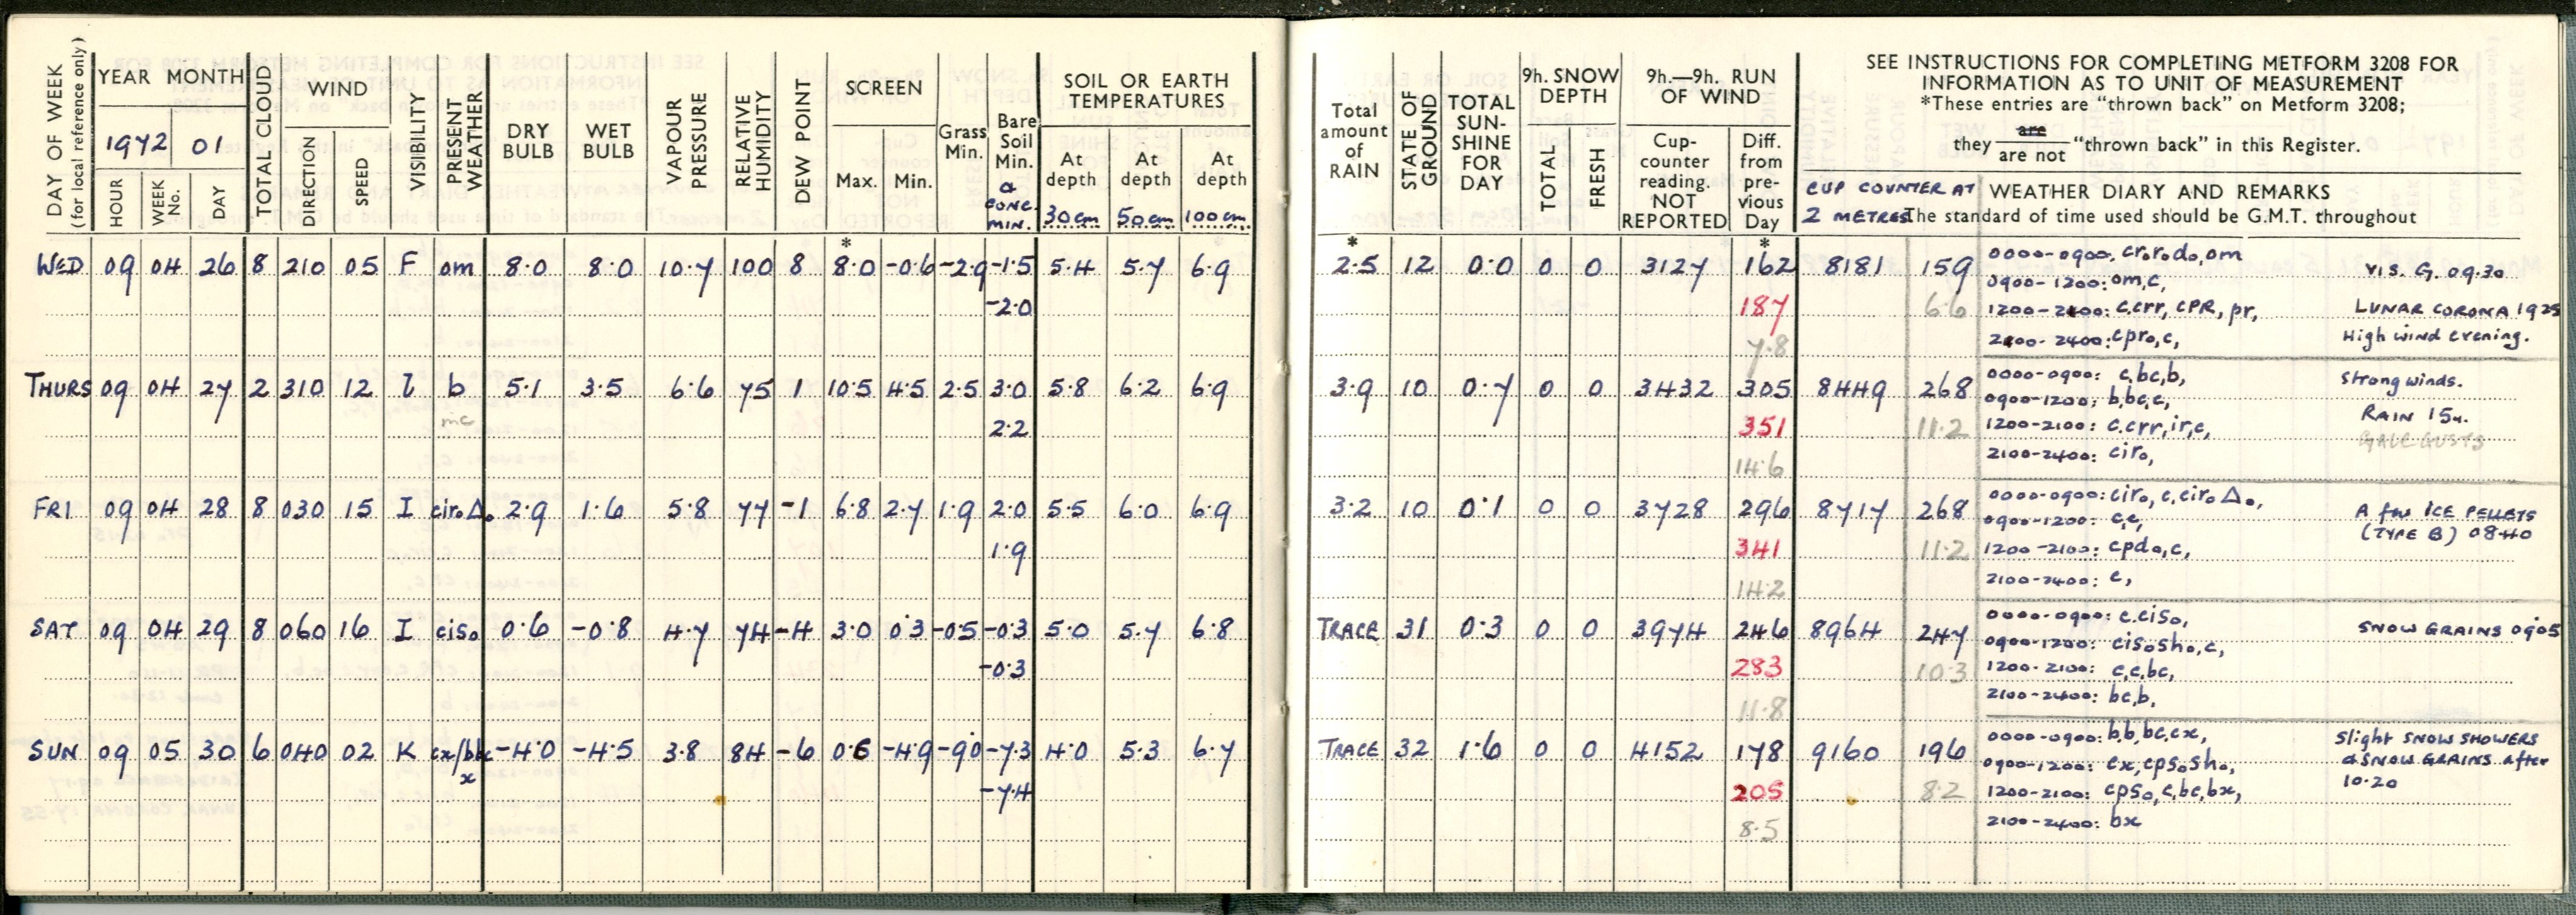 DAY OF WEEK
(for local reference only)
YEAR MONTH
1972 01
HOUR
WEEK No.
DAY
TOTAL CLOUD
WIND
DIRECTION
SPEED
VISIBILITY
PRESENT WEATHER
DRY BULB
WET BULB
VAPOUR PRESSURE
RELATIVE HUMIDITY
DEW POINT
SCREEN
Max. Min.
Grass Min.
Bare Soil Min.
& CONC. MIN.
SOIL OR EARTH TEMPERATURES
At depth 30 cm
At depth 50 cm
At depth 100 cm
Total amount of RAIN
STATE OF GROUND
TOTAL SUN-SHINE FOR DAY
9h. SNOW DEPTH
TOTAL
FRESH
9h.—9h. RUN OF WIND
Cup-counter reading. NOT REPORTED
Diff. from pre-vious Day
SEE INSTRUCTIONS FOR COMPLETING METFORM 3208 FOR
INFORMATION AS TO UNIT OF MEASUREMENT
*These entries are "thrown back" on Metform 3208;
they are / are not "thrown back" in this Register.
CUP COUNTER AT 2 METRES
WEATHER DIARY AND REMARKS
The standard of time used should be G.M.T. throughout
* * *
WED 09 04 26 8 210 05 F om 8.0 8.0 10.7 100 8 8.0 -0.6 -2.9 -1.5 5.4 5.7 6.9 2.5 12 0.0 0 0 3127 162 8181 159 0000-0900: cr₀r₀d₀,om vis. G. 09.30
0900-1200: om,c,
-2.0 187 6.6 1200-2100: c,crr, cPR, pr, LUNAR CORONA 1925
7.8 2100-2400: cpr₀,c, High wind evening.
THURS 09 04 27 2 310 12 l b 5.1 3.5 6.6 75 1 10.5 4.5 2.5 3.0 5.8 6.2 6.9 3.9 10 0.7 0 0 3432 305 8449 268 0000-0900: c,bc,b, Strong winds.
0900-1200: b,bc,c,
mc 2.2 351 11.2 1200-2100: c,crr,ir,c, RAIN 15u.
GALE GUSTS
14.6 2100-2400: cir₀,
FRI 09 04 28 8 030 15 I cir₀Δ₀ 2.9 1.6 5.8 77 -1 6.8 2.7 1.9 2.0 5.5 6.0 6.9 3.2 10 0.1 0 0 3728 296 8717 268 0000-0900: cir₀, c,cir₀Δ₀, A few ICE PELLETS
0900-1200: c,c, (TYPE B) 0840
1.9 341 11.2 1200-2100: cpd₀,c,
14.2 2100-2400: c,
SAT 09 04 29 8 060 16 I cis₀ 0.6 -0.8 4.7 74 -4 3.0 0.3 -0.5 -0.3 5.0 5.7 6.8 TRACE 31 0.3 0 0 3974 246 8964 247 0000-0900: c,cis₀, SNOW GRAINS 0905
0900-1200: cis₀sh₀,c,
-0.3 283 10.3 1200-2100: c,c,bc,
11.8 2100-2400: bc,b,
SUN 09 05 30 6 040 02 K cx/bbc x -4.0 -4.5 3.8 84 -6 0.6 -4.9 -9.0 -7.3 4.0 5.3 6.7 TRACE 32 1.6 0 0 4152 178 9160 196 0000-0900: b,b,bc,cx, Slight SNOW SHOWERS
0900-1200: cx,cps₀sh₀, & SNOW GRAINS after
-7.4 205 8.2 1200-2100: cps₀,c,bc,bx, 10.20
8.5 2100-2400: bx